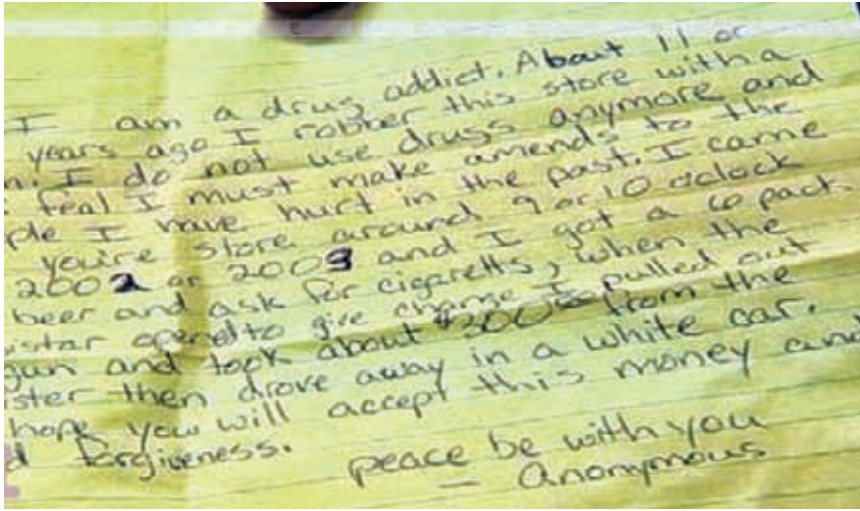 I am a drug addict. About 11 or
years ago I robber this store with a
n. I do not use drugs anymore and
feal I must make amends to the
ple I have hurt in the past. I came
you're store around 9 or 10 oclock
2002 or 2003 and I got a 6 pack
beer and ask for cigaretts, when the
istar opend to give change I pulled out
gun and took about $300 from the
ister then drove away in a white car.
hope you will accept this money and
d forgiveness.
peace be with you
— Anonymous